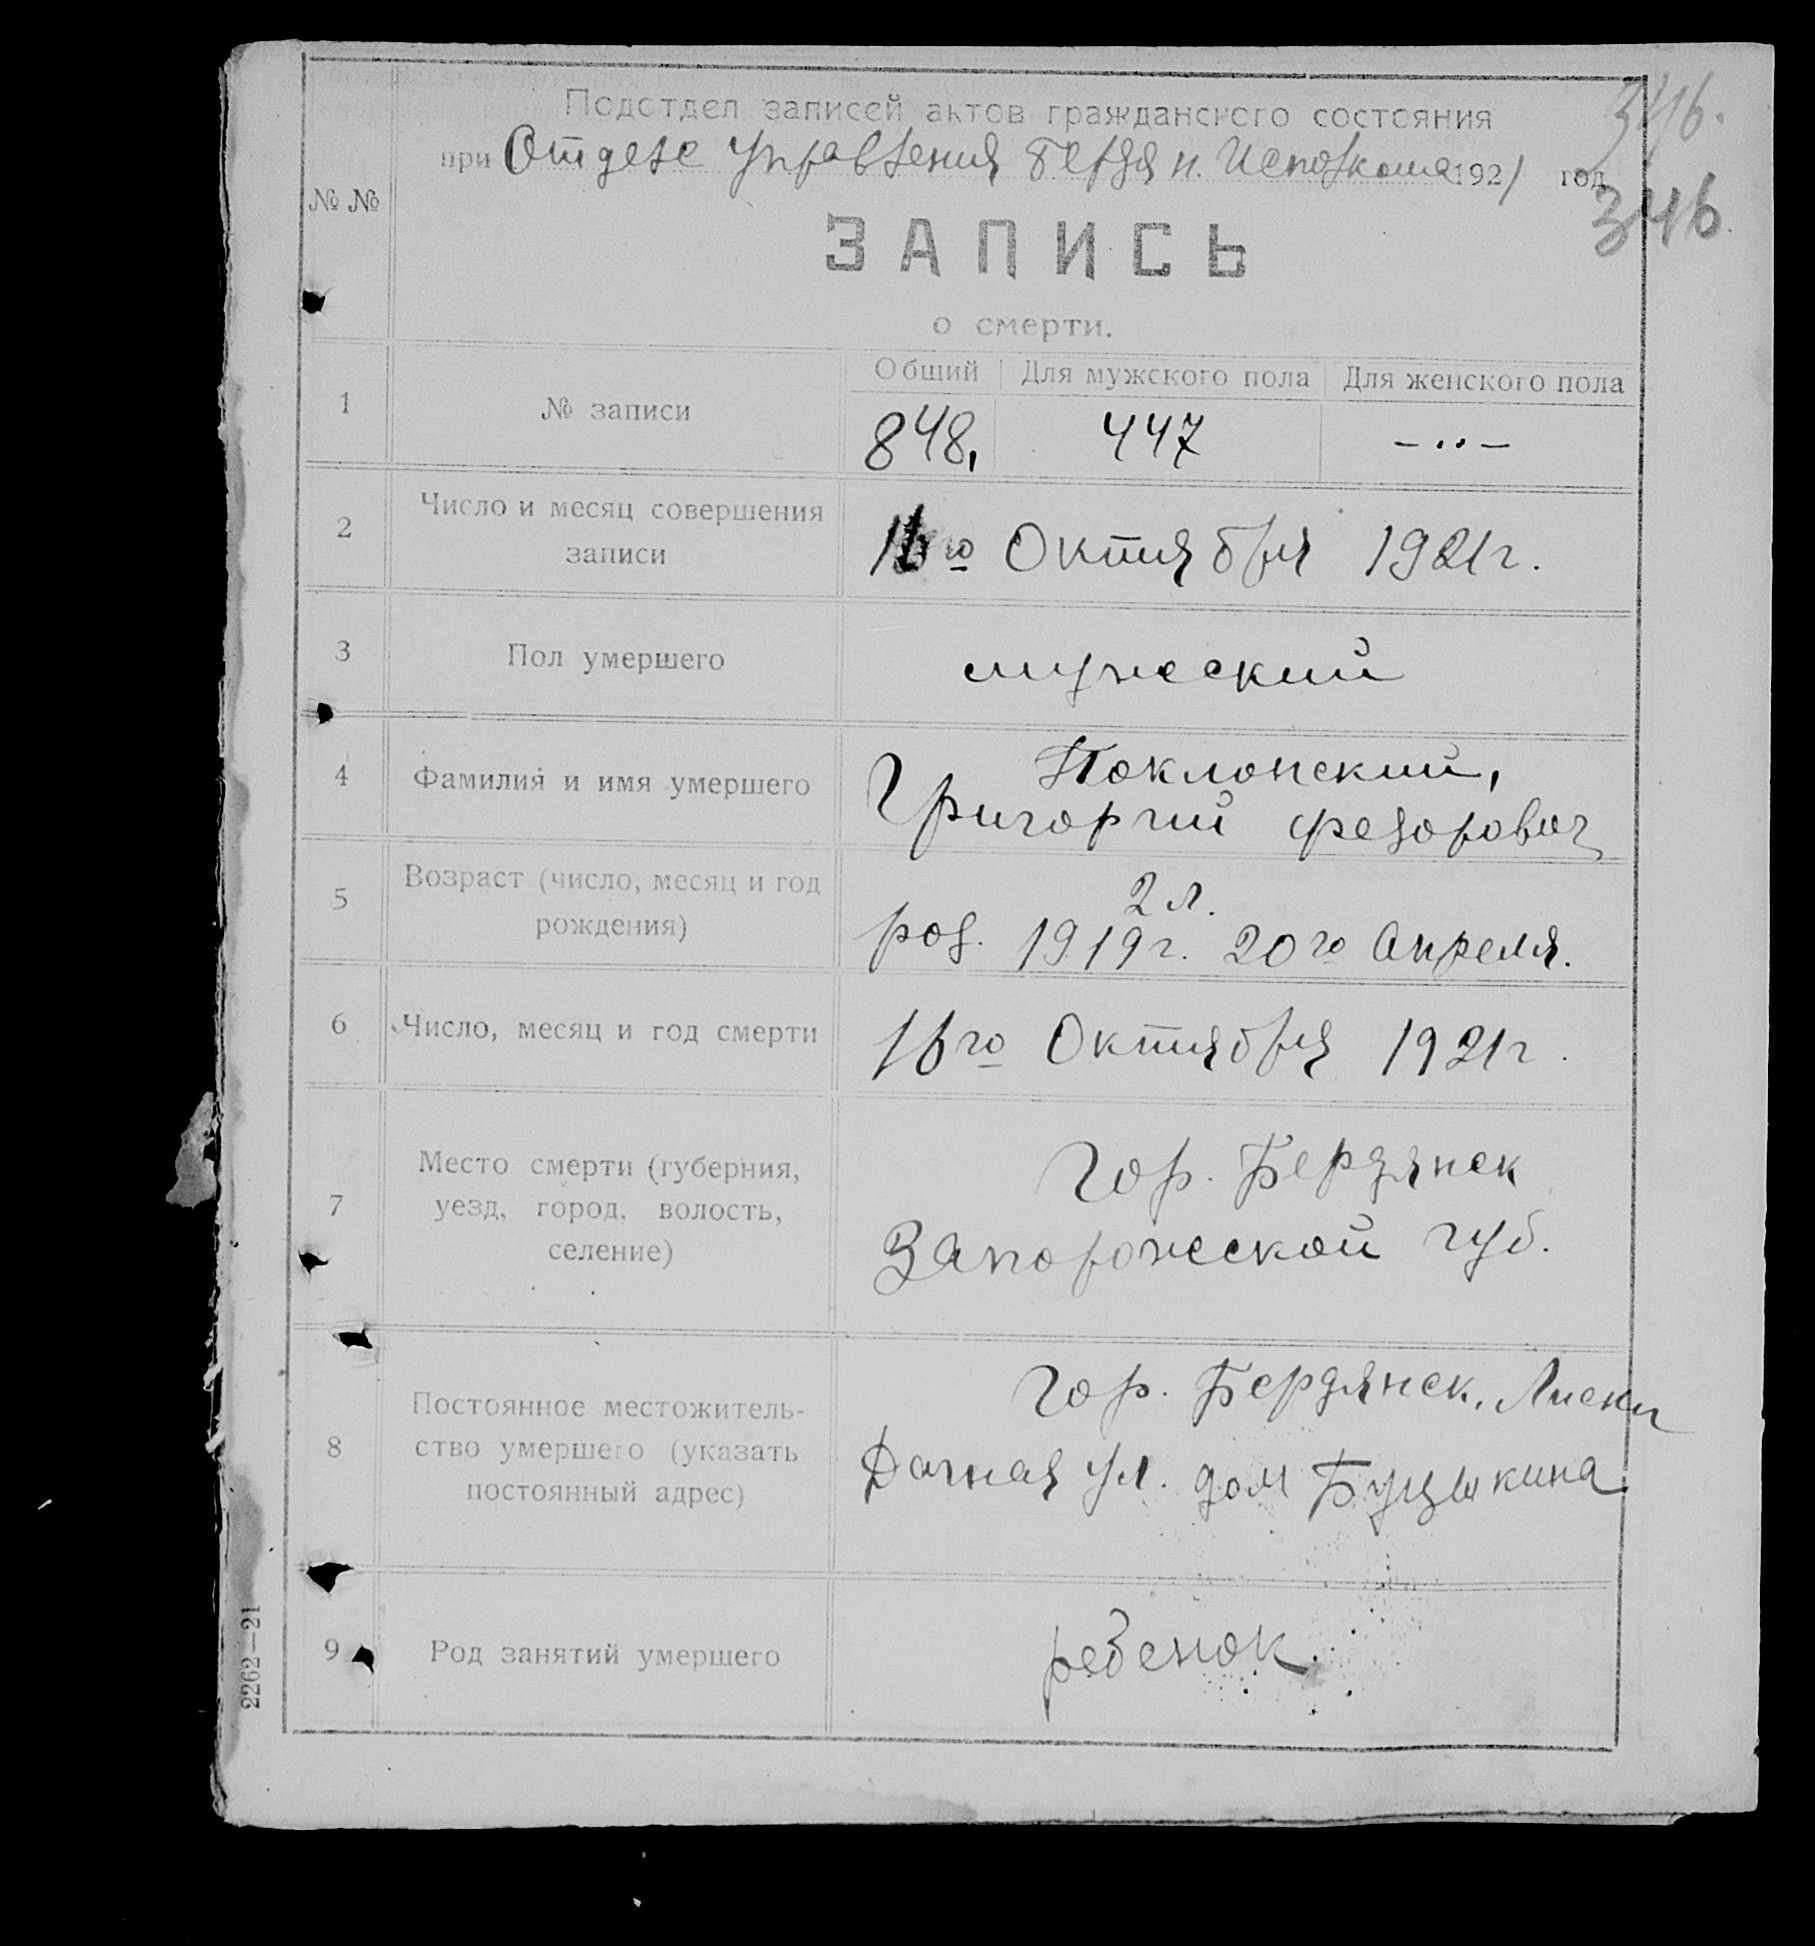 346.
Подотдел записей актов гражданского состояния
при Отделе Управления Бердян. Исполкома 1921 год
346
№ №
ЗАПИСЬ
о смерти.
Общий Для мужского пола Для женского пола
1 № записи 848, 447 – ·· –
2 Число и месяц совершения
записи
16го Октября 1921г.
3 Пол умершего мужеский
4 Фамилия и имя умершего Поклонский,
Григорий Федорович
5 Возраст (число, месяц и год
рождения)
2 л.
род. 1919г. 20го Апреля.
6 Число, месяц и год смерти 16го Октября 1921г.
7 Место смерти (губерния,
уезд, город, волость,
селение)
Гор. Бердянск
Запорожеской губ.
8 Постоянное местожитель-
ство умершего (указать
постоянный адрес)
Гор. Бердянск, Лиски
Дачная ул. дом
9 Род занятий умершего ребенок
2262—21